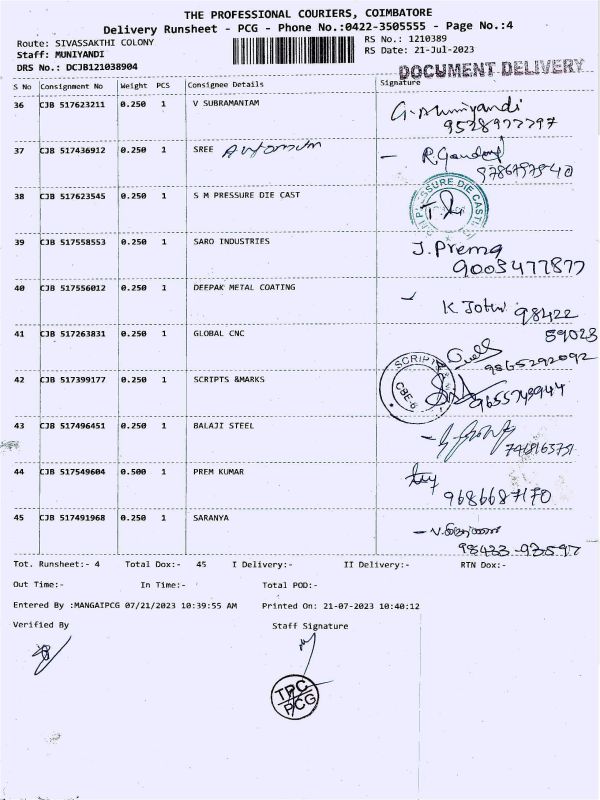 THE PROFESSIONAL COURIERS, COIMBATORE
Delivery Runsheet - PCG - Phone No.:0422-3505555 - Page No.:4
Route: SIVASSAKTHI COLONY
Staff: MUNIYANDI
DRS No.: DCJB121038904
RS No.: 1210389
RS Date: 21-Jul-2023
DOCUMENT DELIVERY
S No Consignment No Weight PCS Consignee Details Signature
36 CJB 517623211 0.250 1 V SUBRAMANIAM G. Muniyandi
9528977797
37 CJB 517436912 0.250 1 SREE
38 CJB 517623545 0.250 1 S M PRESSURE DIE CAST
39 CJB 517558553 0.250 1 SARO INDUSTRIES J. Prema
9003477877
40 CJB 517556012 0.250 1 DEEPAK METAL COATING K 98422
59023
41 CJB 517263831 0.250 1 GLOBAL CNC
9865292092
42 CJB 517399177 0.250 1 SCRIPTS &MARKS CBE-6
43 CJB 517496451 0.250 1 BALAJI STEEL
44 CJB 517549604 0.500 1 PREM KUMAR
9686687170
45 CJB 517491968 0.250 1 SARANYA
98433-93597
Tot. Runsheet:- 4 Total Dox:- 45 I Delivery:- II Delivery:- RTN Dox:-
Out Time:- In Time:- Total POD:-
Entered By :MANGAIPCG 07/21/2023 10:39:55 AM Printed On: 21-07-2023 10:40:12
Verified By Staff Signature
TPC
PCG